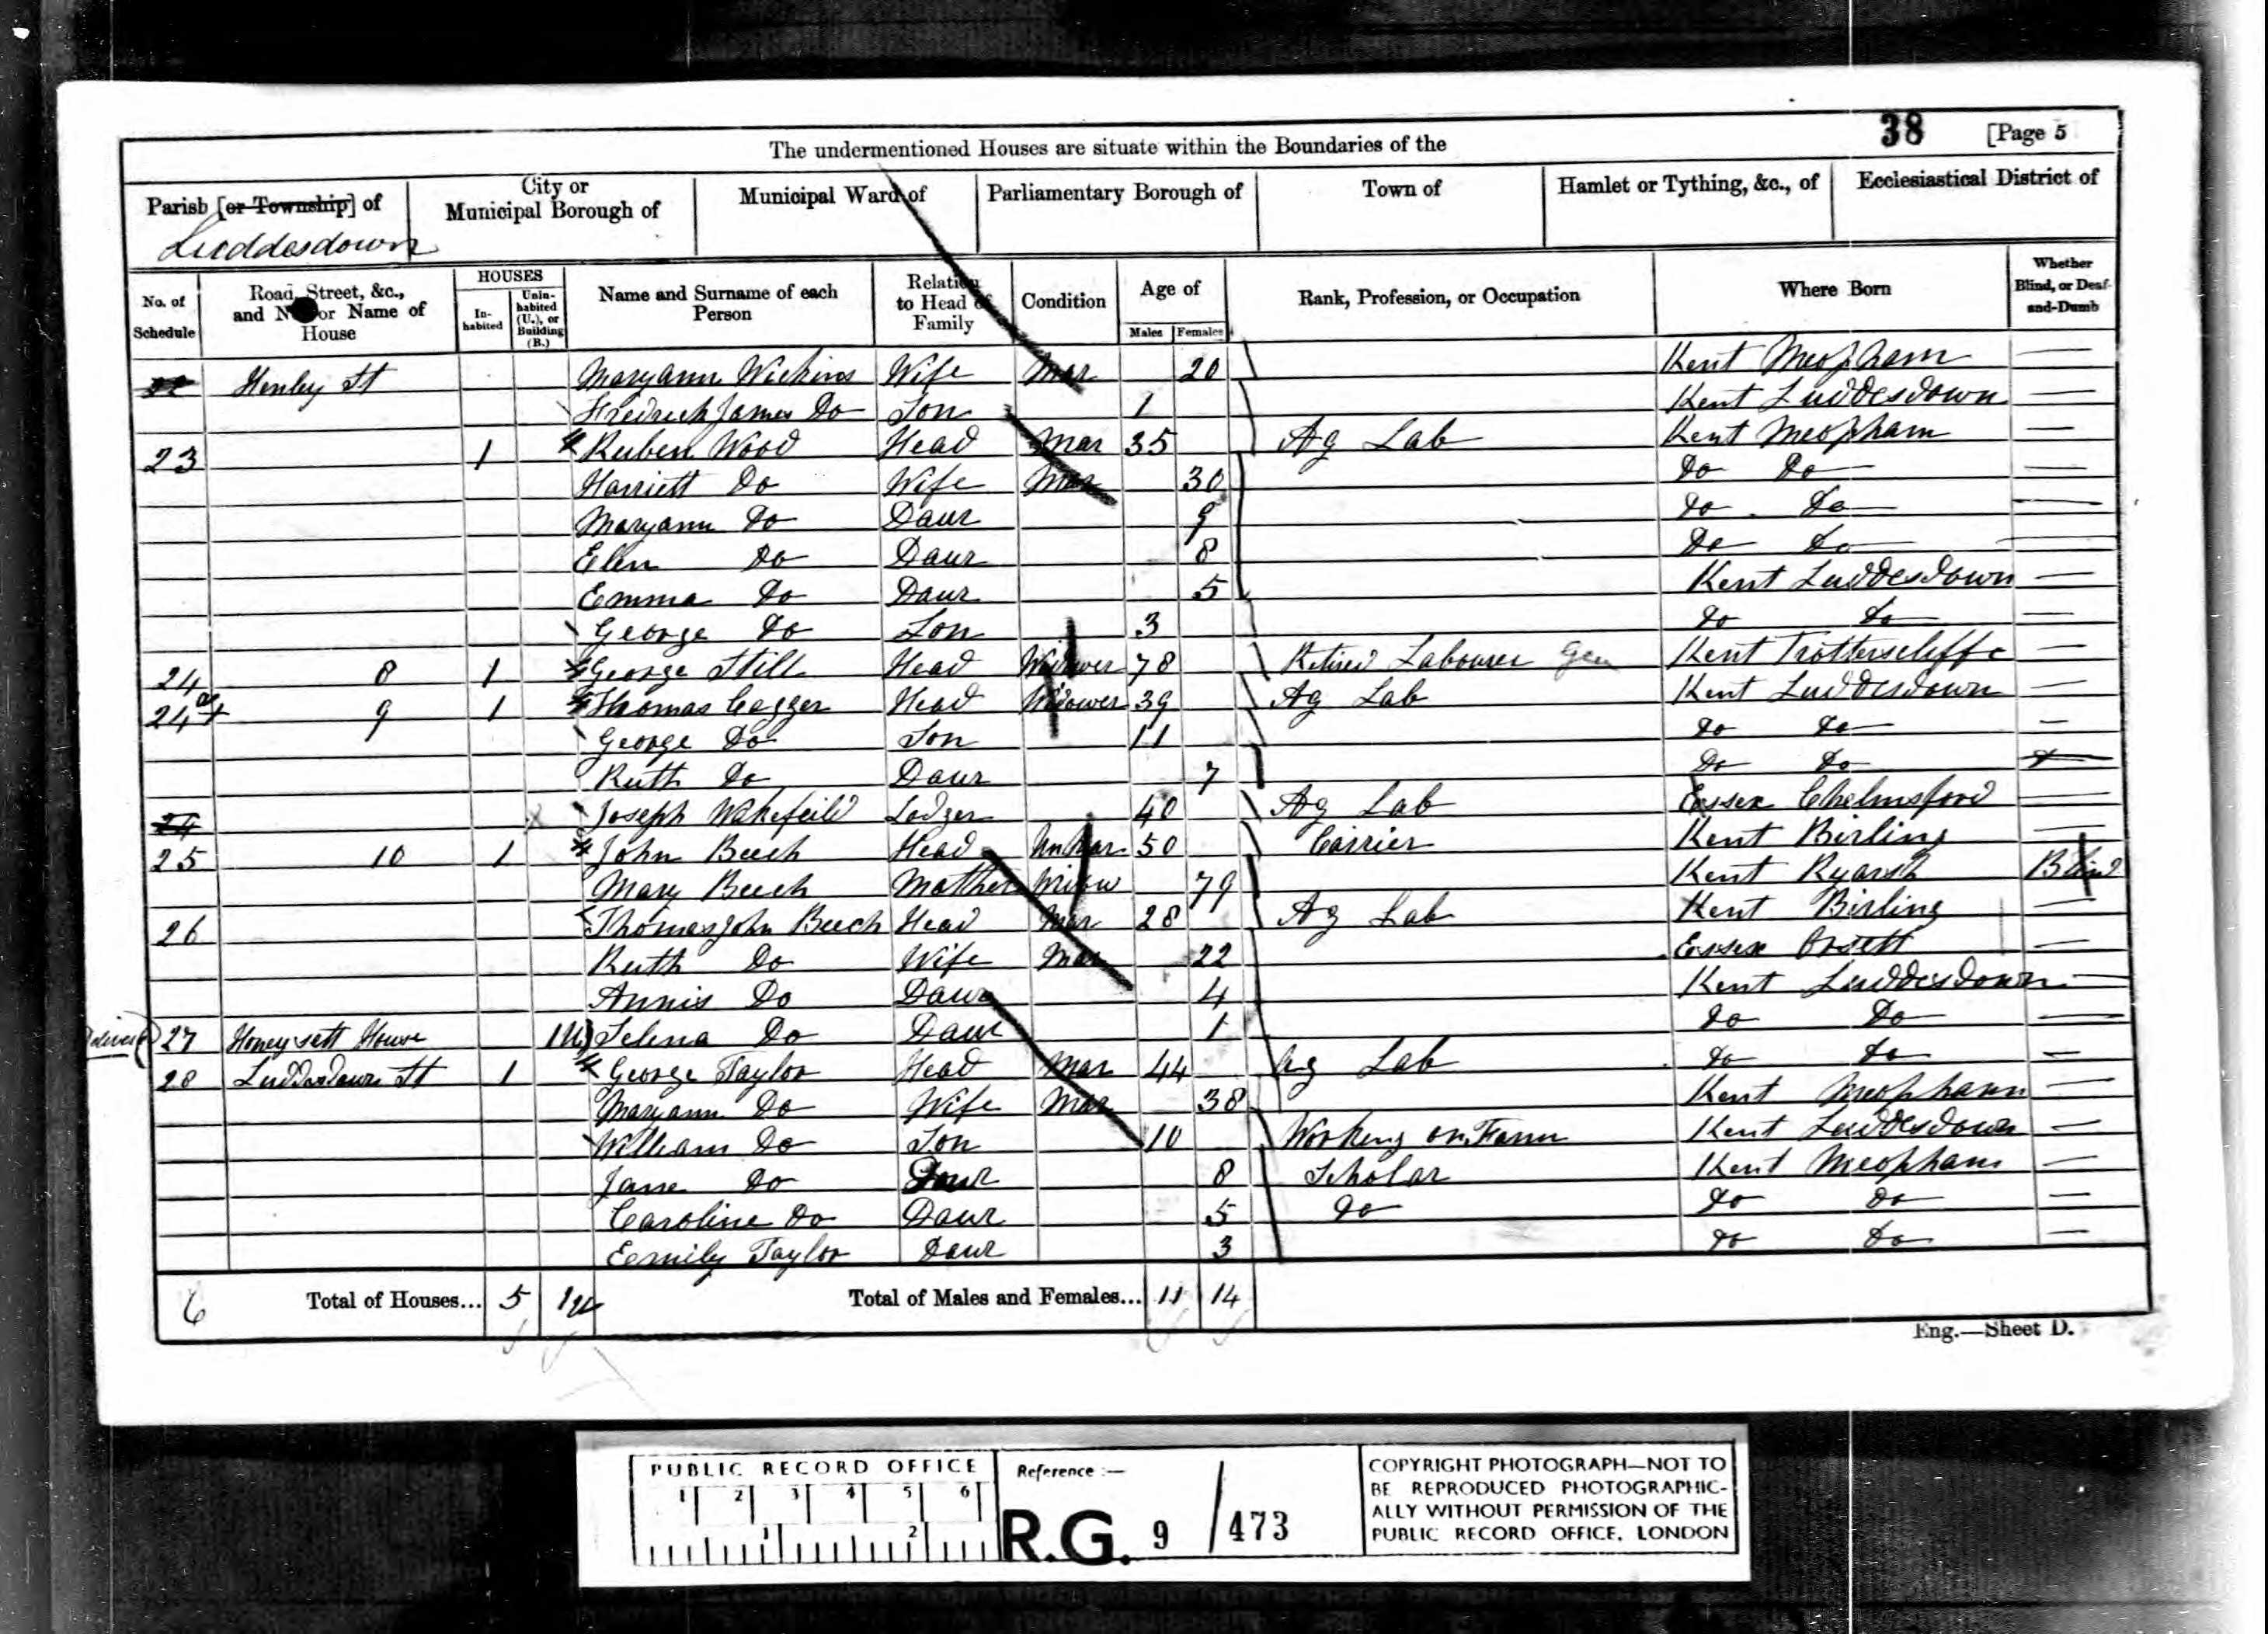 38 [Page 5
The undermentioned Houses are situate within the Boundaries of the
Parish [or Township] of
City or Municipal Borough of
Municipal Ward of
Parliamentary Borough of
Town of
Hamlet or Tything, &c., of
Ecclesiastical District of
Luddesdown
No. of Schedule
Road, Street, &c., and No. or Name of House
HOUSES
In-habited
Unin-habited (U.), or Building (B.)
Name and Surname of each Person
Relation to Head of Family
Condition
Age of
Males Females
Rank, Profession, or Occupation
Where Born
Whether Blind, or Deaf-and-Dumb
22 Henley St Maryann Wickins Wife Mar 20 Kent Meopham —
Fredrick James Do Son 1 Kent Luddesdown —
23 1 Reuben Wood Head Mar 35 Ag Lab Kent Meopham —
Harriett Do Wife Mar 30 Do Do —
Maryann Do Daur 9 Do Do —
Elen Do Daur 8 Do Do —
Emma Do Daur 5 Kent Luddesdown —
George Do Son 3 Do Do —
24 8 1 George Still Head Widower 78 Retired Labourer Gen Kent Trotterscliffe —
24 9 1 Thomas Cogger Head Widower 39 Ag Lab Kent Luddesdown —
George Do Son 11 Do Do —
Ruth Do Daur 7 Do Do
24 Joseph Wakefeild Lodger 40 Ag Lab Essex Chelmsford —
25 10 1 John Beech Head Unmar 50 Carrier Kent Birling —
Mary Beech Mother Widow 79 Kent Ryarsh Blind
26 Thomas John Beech Head Mar 28 Ag Lab Kent Birling —
Ruth Do Wife Mar 22 Essex Orsett —
Annis Do Daur 4 Kent Luddesdown —
27 Honeysett House 1U Selena Do Daur 1 Do Do —
28 Luddesdown St 1 George Taylor Head Mar 44 Ag Lab Do Do —
Maryann Do Wife Mar 38 Kent Meopham —
William Do Son 10 Working on Farm Kent Luddesdown —
Jane Do Daur 8 Scholar Kent Meopham —
Caroline Do Daur 5 Do Do Do —
Eemily Taylor Daur 3 Do Do —
6 Total of Houses... 5 1U Total of Males and Females... 11 14
Eng.—Sheet D.
PUBLIC RECORD OFFICE
1 2 3 4 5 6
1 2
Reference :—
R.G. 9 / 473
COPYRIGHT PHOTOGRAPH—NOT TO
BE REPRODUCED PHOTOGRAPHIC-
ALLY WITHOUT PERMISSION OF THE
PUBLIC RECORD OFFICE, LONDON